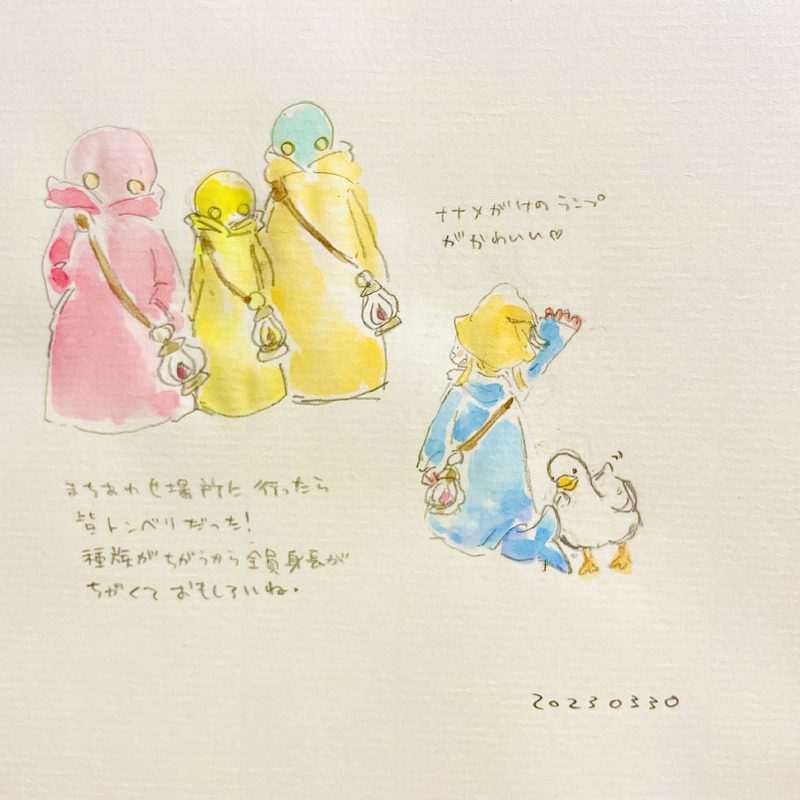 ナナメがけのランプ
がかわいい♡
まちあわせ場所に行ったら
皆トンベリだった!
種族がちがうから全員身長が
ちがくておもしろいね。
20230330